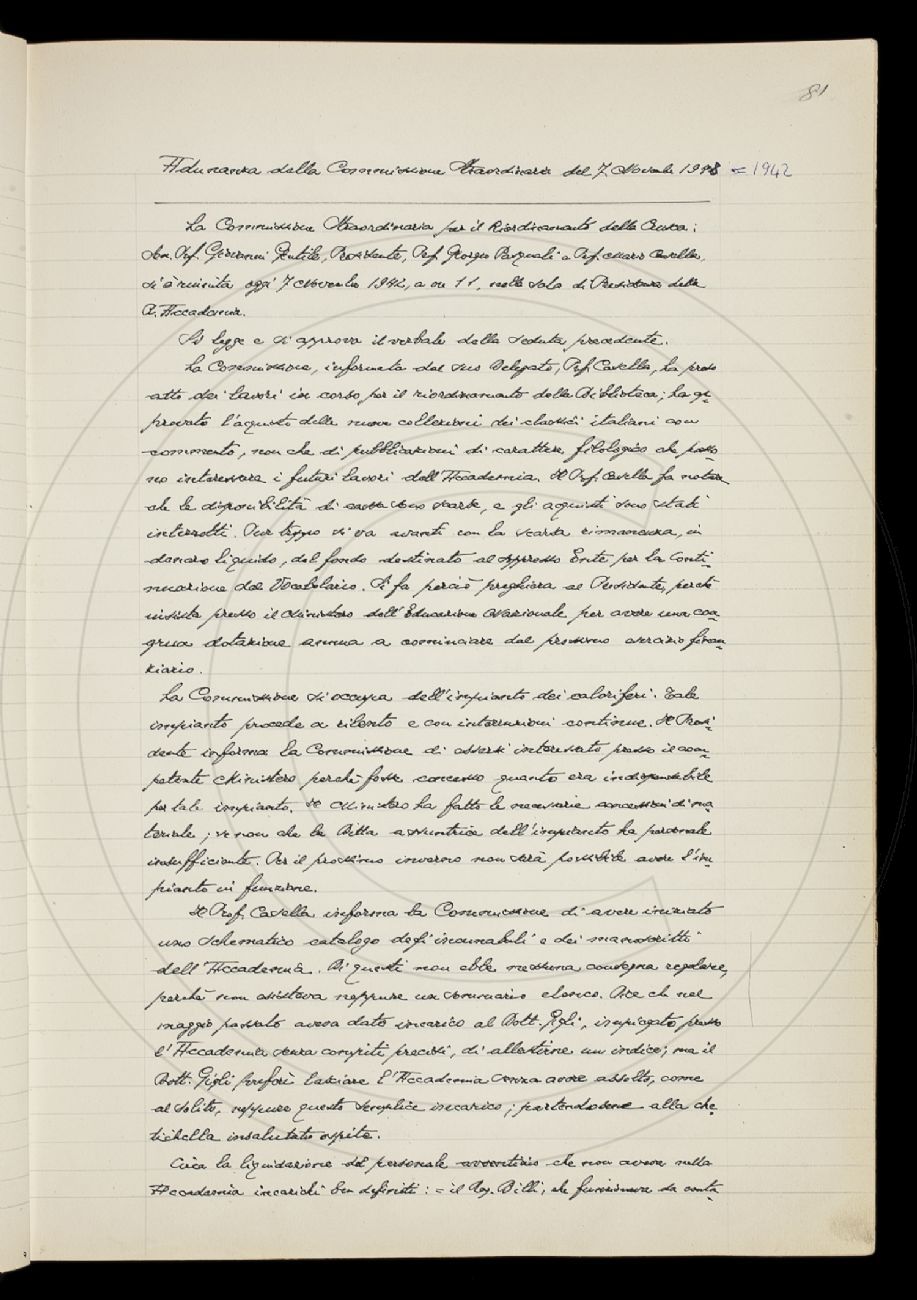 81
Adunanza della Commissione Straordinaria del 7 Novembre 1948 = 1942
La Commissione Straordinaria per il Riordinamento della Crusca:
Sen. Prof. Giovanni Gentile, Presidente, Prof. Giorgio Pasquali e Prof. Mario Casella,
si è riunita oggi 7 Novembre 1942, a ore 11, nella sala di Presidenza della
R. Accademia.
Si legge e si approva il verbale della seduta precedente.
La Commissione, informata dal suo Delegato, Prof. Casella, ha preso
atto dei lavori in corso per il riordinamento della Biblioteca; ha ap-
provato l'acquisto delle nuove collezioni dei classici italiani con
commento, non che di pubblicazioni di carattere filologico che posso-
no interessare i futuri lavori dell'Accademia. Il Prof. Casella fa notare
che le disponibilità di cassa sono scarse, e gli acquisti sono stati
interrotti. Pur troppo si va avanti con la scarsa rimanenza, in
denaro liquido, del fondo destinato al soppresso Ente per la Conti-
nuazione del Vocabolario. Si fa perciò preghiera al Presidente, perché
insista presso il Ministero dell'Educazione Nazionale per avere una con-
grua dotazione annua a cominciare dal prossimo esercizio finan-
ziario.
La Commissione si occupa dell'impianto dei caloriferi. Tale
impianto procede a rilento e con interruzioni continue. Il Presi-
dente informa la Commissione di essersi interessato presso il com-
petente Ministero perché fosse concesso quanto era indispensabile
per tale impianto. Il Ministero ha fatto le necessarie concessioni di ma-
teriale; se non che la Ditta assuntrice dell'impianto ha personale
insufficiente. Per il prossimo inverno non sarà possibile avere l'im-
pianto in funzione.
Il Prof. Casella informa la Commissione di avere iniziato
uno schematico catalogo degli incunabuli e dei manoscritti
dell'Accademia. Di questi non ebbe nessuna consegna regolare,
perché non esisteva neppure un sommario elenco. Dice che nel
maggio passato aveva dato incarico al Dott. Gigli, impiegato presso
l'Accademia senza compiti precisi, di allestirne un indice; ma il
Dott. Gigli preferì lasciare l'Accademia senza avere assolto, come
al solito, neppure questo semplice incarico; partendosene alla che-
tichella insalutato ospite.
Circa la liquidazione del personale avventizio che non aveva nella
Accademia incarichi ben definiti: = il Rag. Billi, che funzionava da conta-